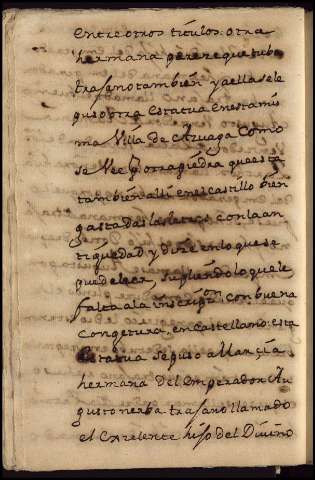 Entre otros titulos: otra
hermana pereze que tubo
trajano tambien y a ella se le
puso otra estatua en esta mis
ma Villa de Azuaga como
se vee por ra piedra que esta
tambien alli en el castillo bien
gastadas las letras con la an
tiguedad y dire en lo que se
puede leer, supliendo lo que le
falta a la inscripon con buena
congetura, en castellano: esta
estatua se puso a Marçia
hermana del emperador Au
gusto nerba trajano llamado
el exzelente hijo del Divino